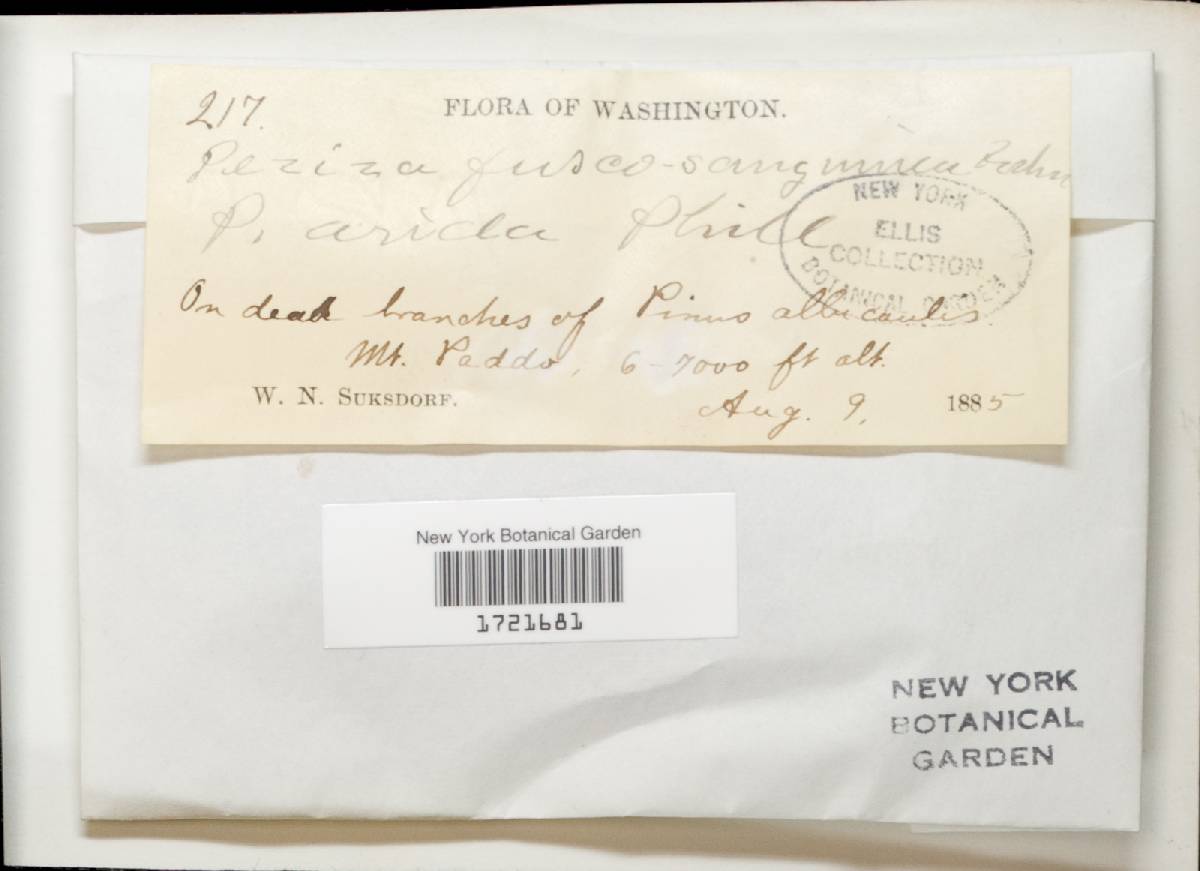 217.
FLORA OF WASHINGTON.
Peziza fusco-sanguinea Rehm
P. arida Phill
NEW YORK
ELLIS
COLLECTION
BOTANICAL GARDEN
On dead branches of Pinus albicaulis.
Mt. Paddo, 6-7000 ft alt.
W. N. SUKSDORF.
Aug. 9, 1885
New York Botanical Garden
1721681
NEW YORK
BOTANICAL
GARDEN